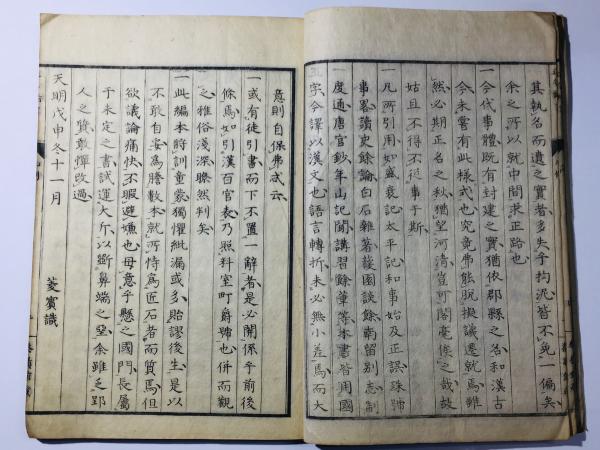 其執名而遺之實者多失乎拘泥皆不免一偏矣
余之所以就中間求正路也
一今代事體既有封建之實猶依郡縣之名和漢古
今未嘗有此樣式也究竟弗能脫擬議遷就焉雖
然必期正名之秋猶望河清豈可闕毫俟之哉故
姑且不得不從事于斯
一凡所引用如盛衰記太平記和事始及正誤珠
事畧讀史餘論白石雜著蘐園談餘南留別志制
度通唐官鈔年山記聞講習餘筆等本書皆用國
字今譯以漢文也語言轉折未必無小差焉而大
意則自保弗忒云
一或有徒引書而下不置一辭者是必關係乎前後
條焉如引漢百官表乃照料室町爵號也併而觀
之雅俗淺深瞭然判矣
一此編本將訓童蒙獨懼紕漏或多貽謬後生是以
不敢自妄為謄數本就所恃為匠石者而質焉但
欲議論痛快不暇避嫌也毋意乎懸之國門長屬
于未定之書試運大斤以斷鼻端之堊余雖乏郢
人之質敢憚改過
天明戊申冬十一月
菱賓識